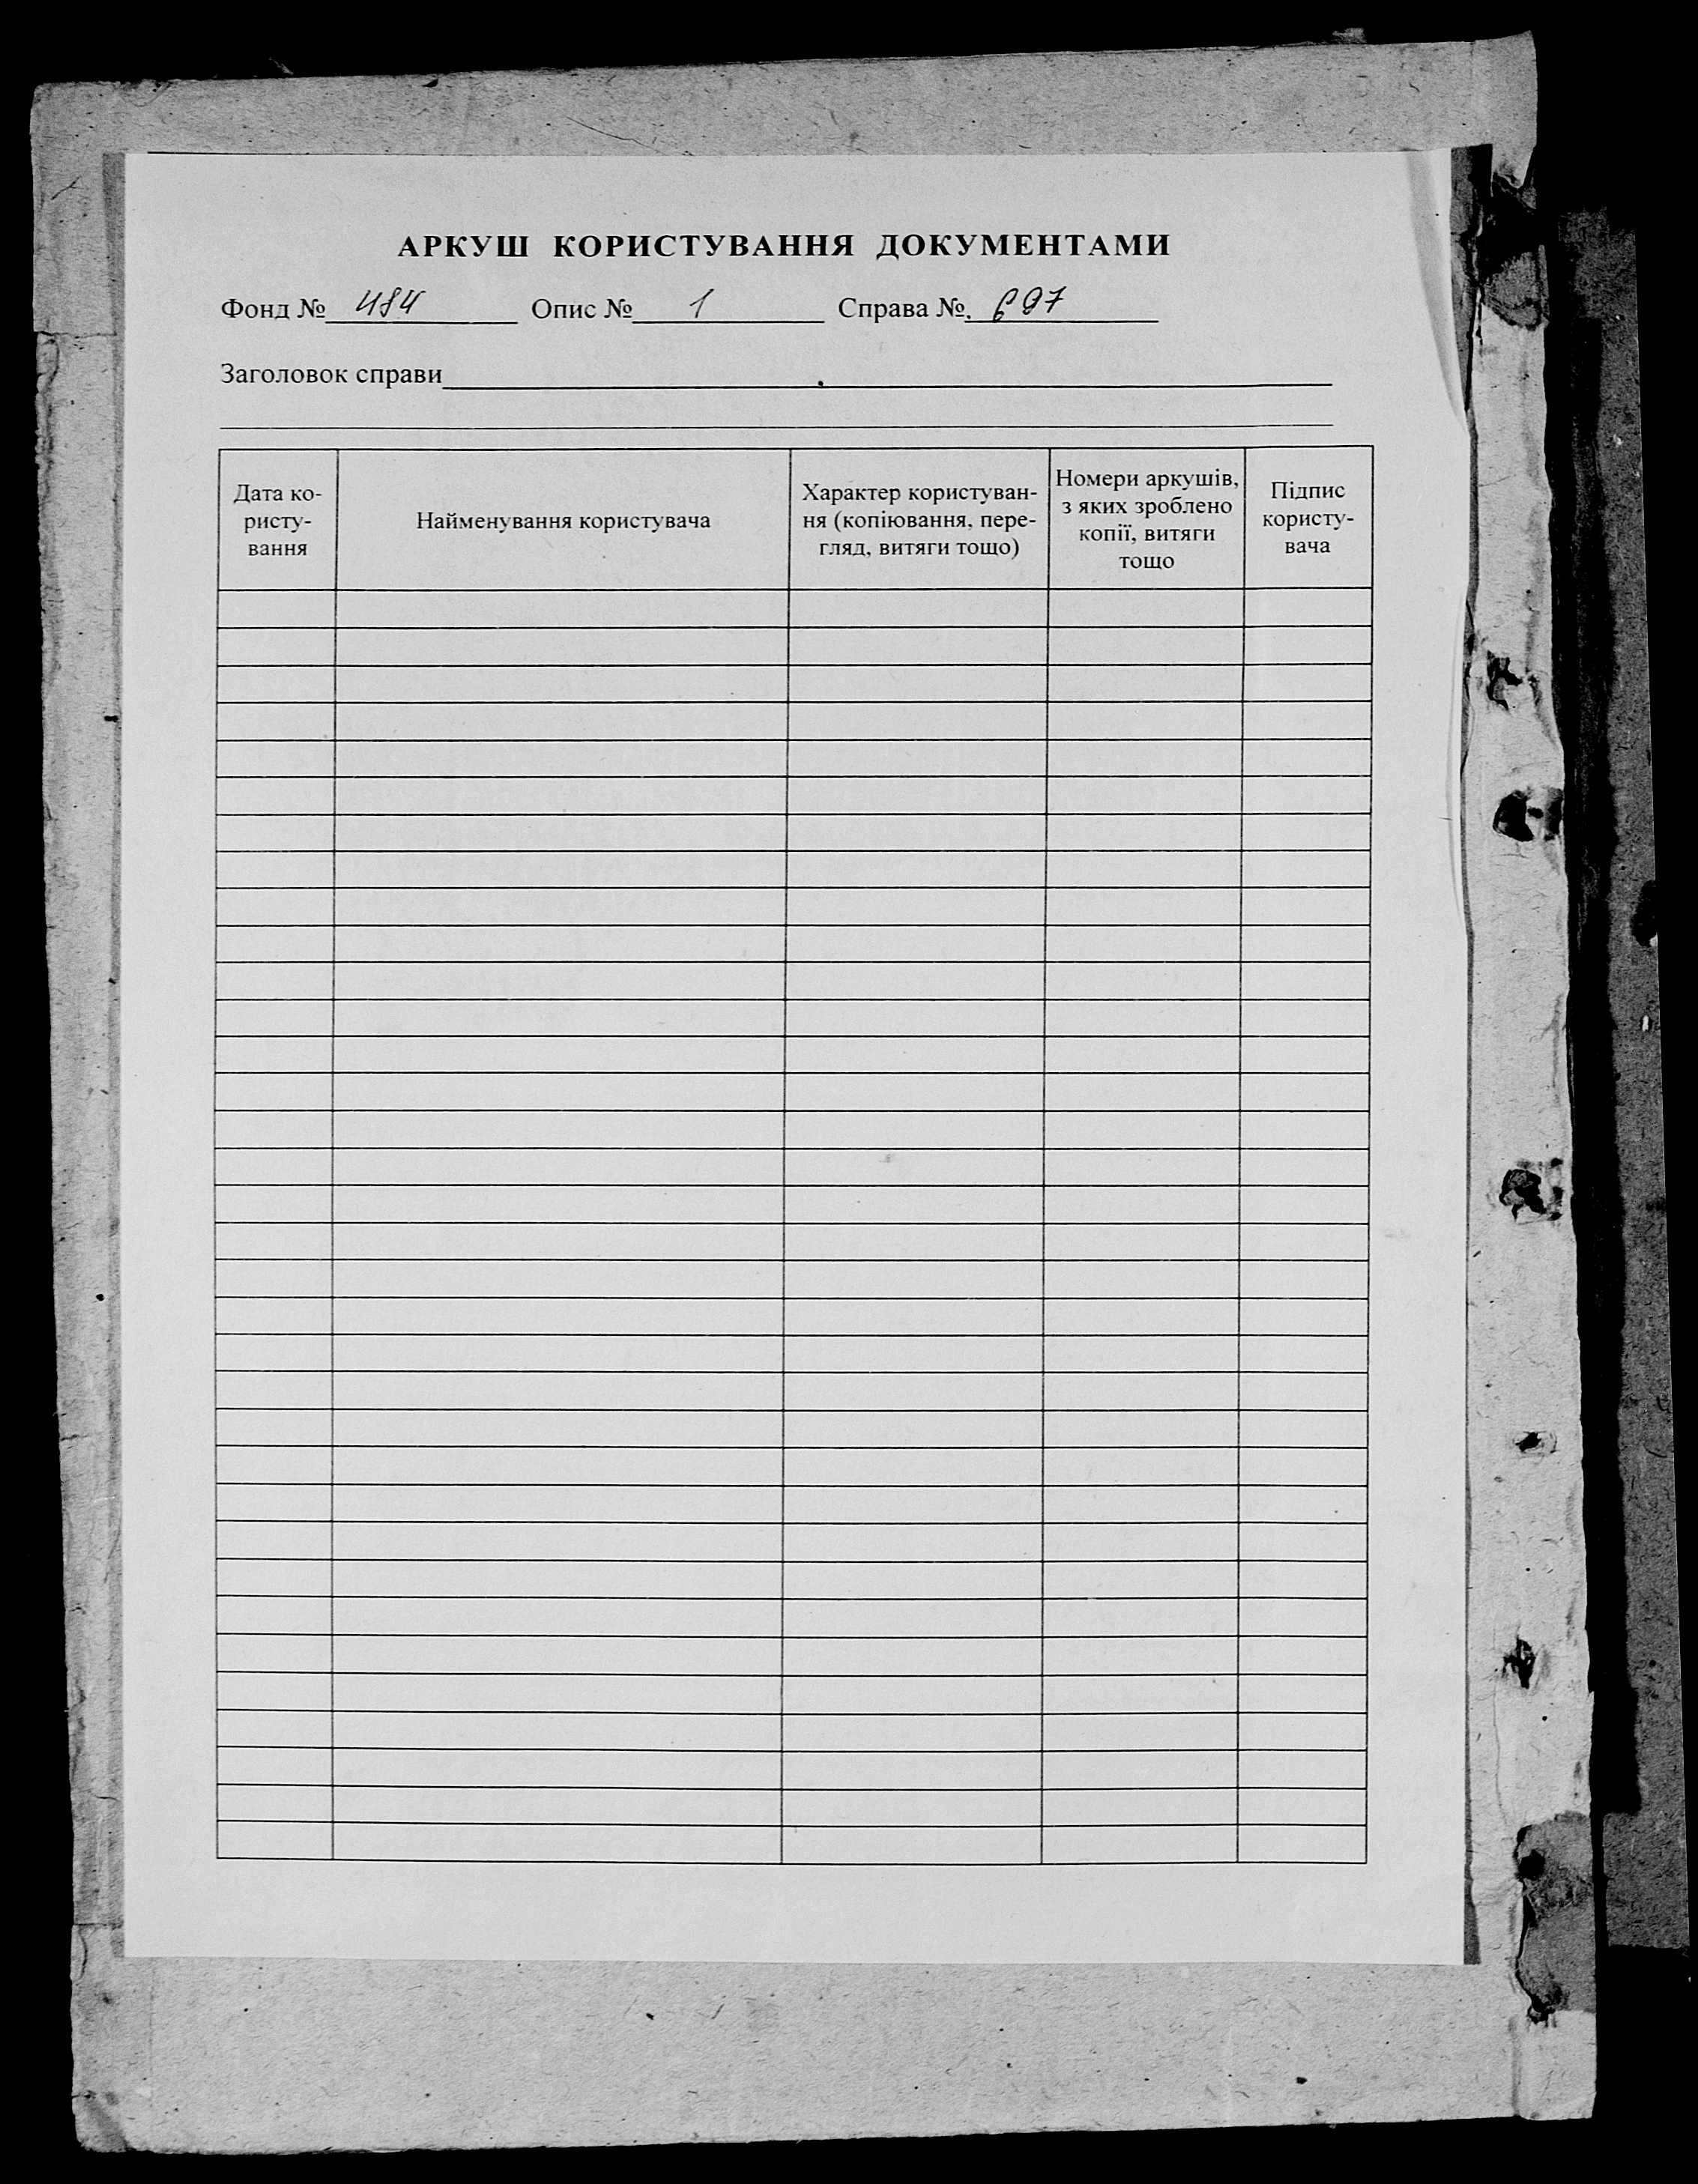 АРКУШ КОРИСТУВАННЯ ДОКУМЕНТАМИ
Фонд № 484 Опис № 1 Справа №. 697
Заголовок справи
Дата ко-
ристу-
вання
Найменування користувача
Характер користуван-
ня (копіювання, пере-
гляд, витяги тощо)
Номери аркушів,
з яких зроблено
копії, витяги
тощо
Підпис
користу-
вача